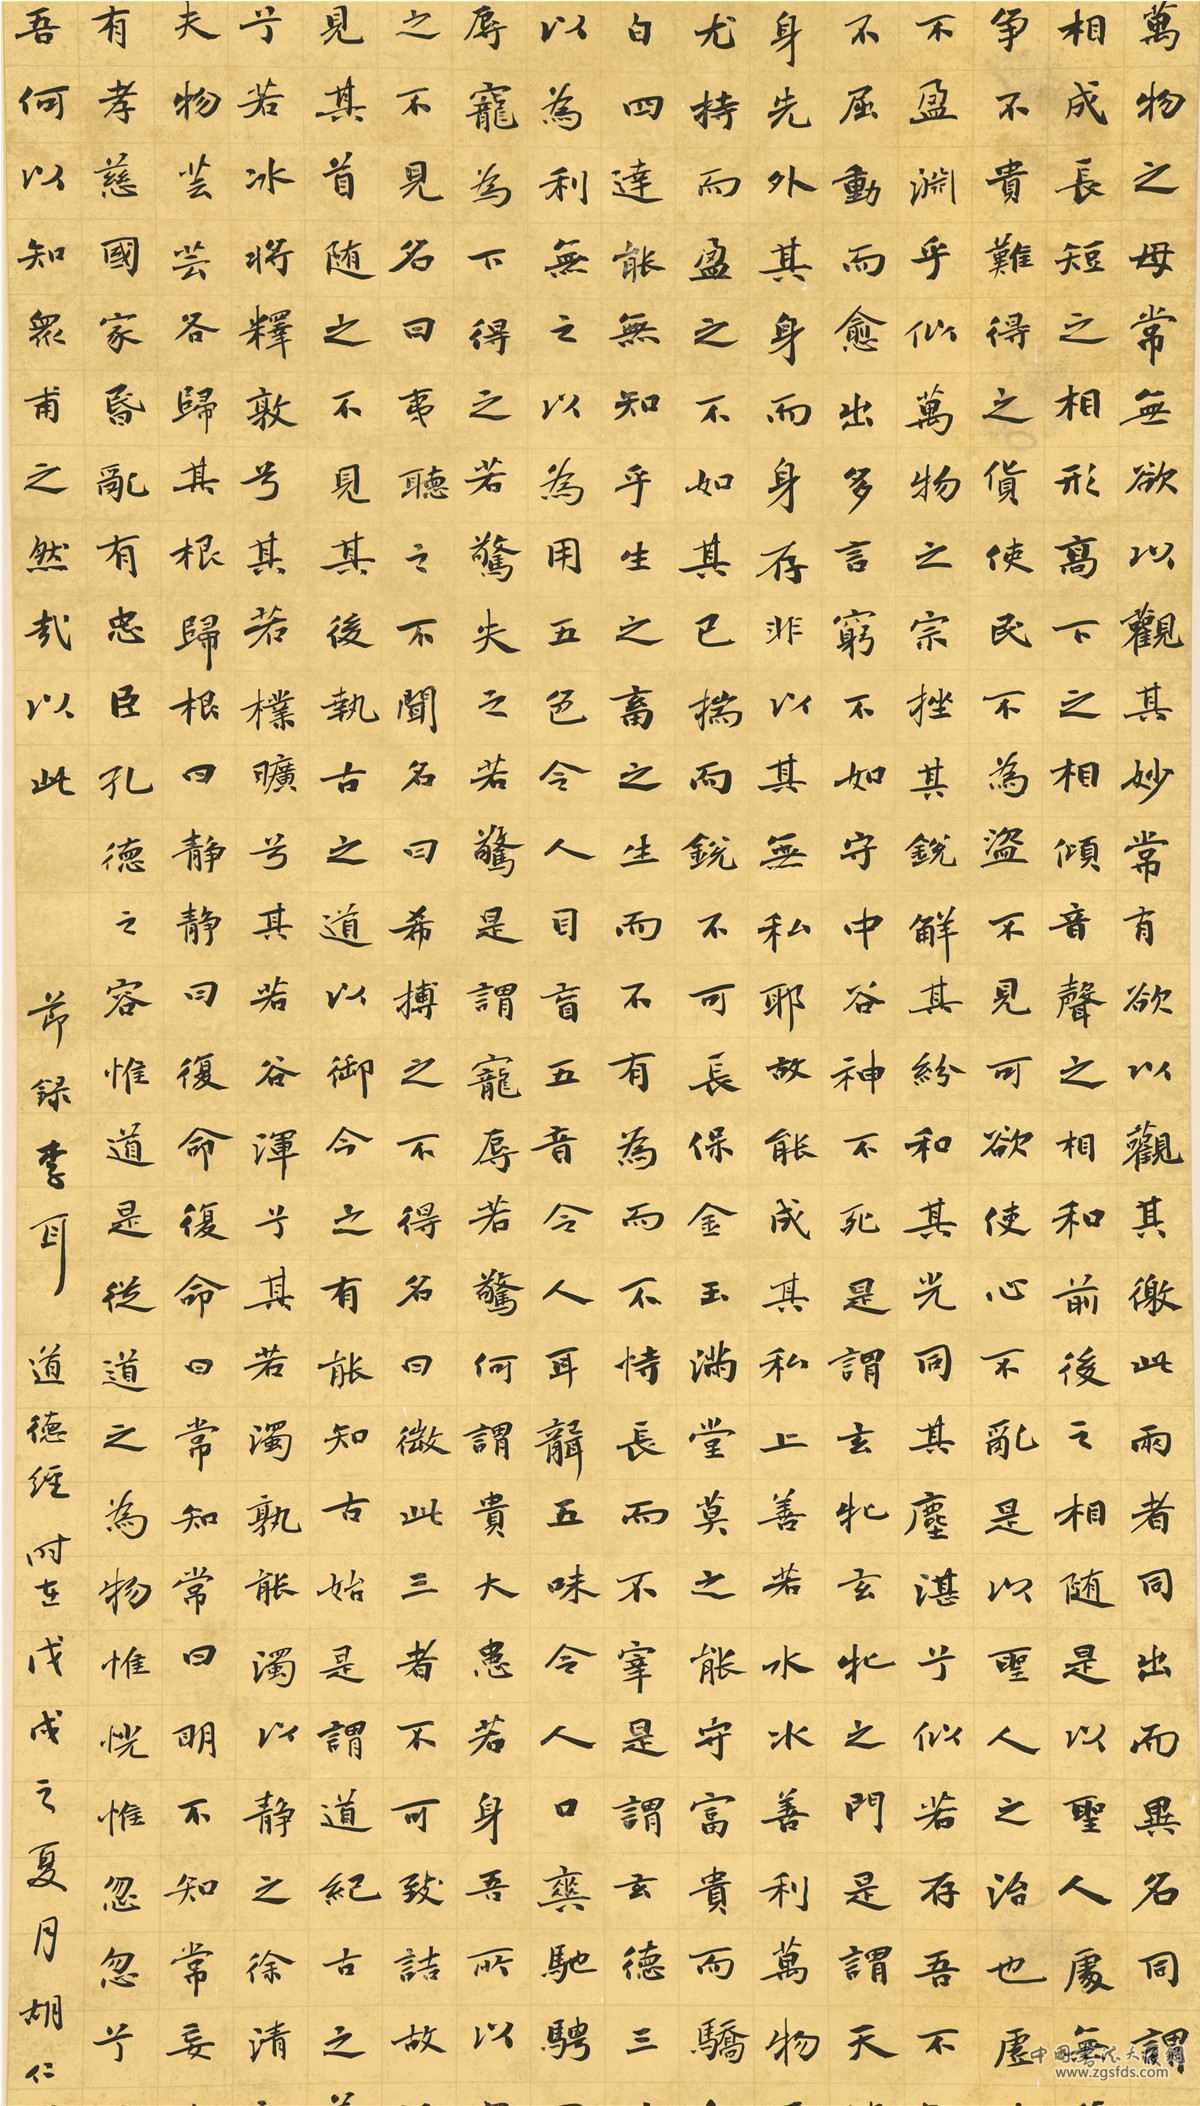 萬物之母常無欲以觀其妙常有欲以觀其徼此兩者同出而異名同謂
相成長短之相形高下之相傾音聲之相和前後之相随是以聖人處無
争不貴難得之貨使民不為盜不見可欲使心不亂是以聖人之治也虛
不盈淵乎似萬物之宗挫其銳解其紛和其光同其塵湛兮似若存吾不
不屈動而愈出多言窮不如守中谷神不死是謂玄牝玄牝之門是謂天
身先外其身而身存非以其無私耶故能成其私上善若水水善利萬物
尤持而盈之不如其已揣而銳不可長保金玉滿堂莫之能守富貴而驕
白四達能無知乎生之畜之生而不有為而不恃長而不宰是謂玄德三
以為利無之以為用五色令人目盲五音令人耳聾五味令人口爽馳騁
辱寵為下得之若驚失之若驚是謂寵辱若驚何謂貴大患若身吾所以
之不見名曰夷聽之不聞名曰希搏之不得名曰微此三者不可致詰故
見其首随之不見其後執古之道以御今之有能知古始是謂道紀古之
兮若冰將釋敦兮其若樸曠兮其若谷渾兮其若濁孰能濁以静之徐清
夫物芸芸各歸其根歸根曰静静曰復命復命曰常知常曰明不知常妄
有孝慈國家昏亂有忠臣孔德之容惟道是從道之為物惟恍惟忽忽兮
吾何以知衆甫之然哉以此
節録李耳道德經时在戊戌之夏月胡仁
www.zgsfds.com